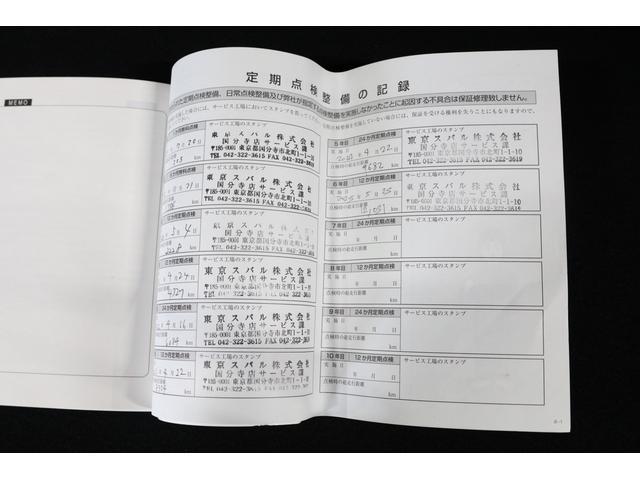 MEMO
定期点検整備の記録
た定期点検整備、日常点検整備及び弊社が指定する点検整備を実施しなかったことに起因する不具合は保証修理致しません。
場合には、サービス工場においてスタンプを
を実施していない場合には、保証を受ける権利を失うことにもなりますので、
サービス工場のスタンプ
東京スバル株式会社
国分寺店サービス課
〒185-0001 東京都国分寺市北町1-1-10
TEL 042-322-3615 FAX 042-322-3619
サービス工場のスタンプ
東京スバル株式会社
国分寺店サービス課
〒185-0001 東京都国分寺市北町1-1-10
TEL 042-322-3615 FAX 042-322-361
サービス工場のスタンプ
東京スバル株式会社
国分寺店サービス課
〒185-0001 東京都国分寺市北町1-1-1
042-322-3615 FAX 042-322-36
サービス工場のスタンプ
東京スバル株式会社
国分寺店サービス課
〒185-0001 東京都国分寺市北町1-1-1
TEL 042-322-3615 FAX 042-322-363
サービス工場のスタンプ
東京スバル株式会社
国分寺店サービス課
〒185-0001 東京都国分寺市北町1-1-10
TEL 042-322-3615 FAX 042-322-361
4月22日
サービス工場のスタンプ
東京スバル株式会社
国分寺店サービス課
〒185-0001 東京都国分寺市北町1-1-10
TEL 042-322-3615 FAX 042-322-361
5年目 24か月定期点検
実施日
4月22日
点検時の総走行距離
9682 km
サービス工場のスタンプ
東京スバル株式会社
国分寺店サービス課
〒185-0001 東京都国分寺市北町1-1-10
TEL 042-322-3615 FAX 042-322-3619
6年目 12か月定期点検
実施日
5月25日
点検時の総走行距離
km
サービス工場のスタンプ
東京スバル株式会社
国分寺店サービス課
〒185-0001 東京都国分寺市北町1-1-10
7年目 24か月定期点検
実施日
年 月 日
点検時の総走行距離
km
サービス工場のスタンプ
8年目 12か月定期点検
実施日
年 月 日
点検時の総走行距離
km
サービス工場のスタンプ
9年目 24か月定期点検
実施日
年 月 日
点検時の総走行距離
km
サービス工場のスタンプ
10年目 12か月定期点検
実施日
年 月 日
点検時の総走行距離
km
サービス工場のスタンプ